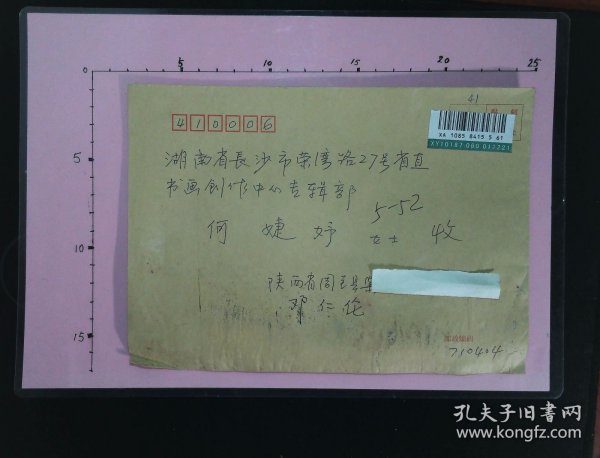 5 10 15 20 25
0
5
10
15
41
410006
XA 1085 8415 5 61
XY10187 000 017221
湖南省長沙市荣湾路27号省直
书画创作中心专辑部
5-52
何婕妤 女士 收
陕西省周至县集
邓仁伦
邮政编码
710404
孔夫子旧书网
www.kongfz.com